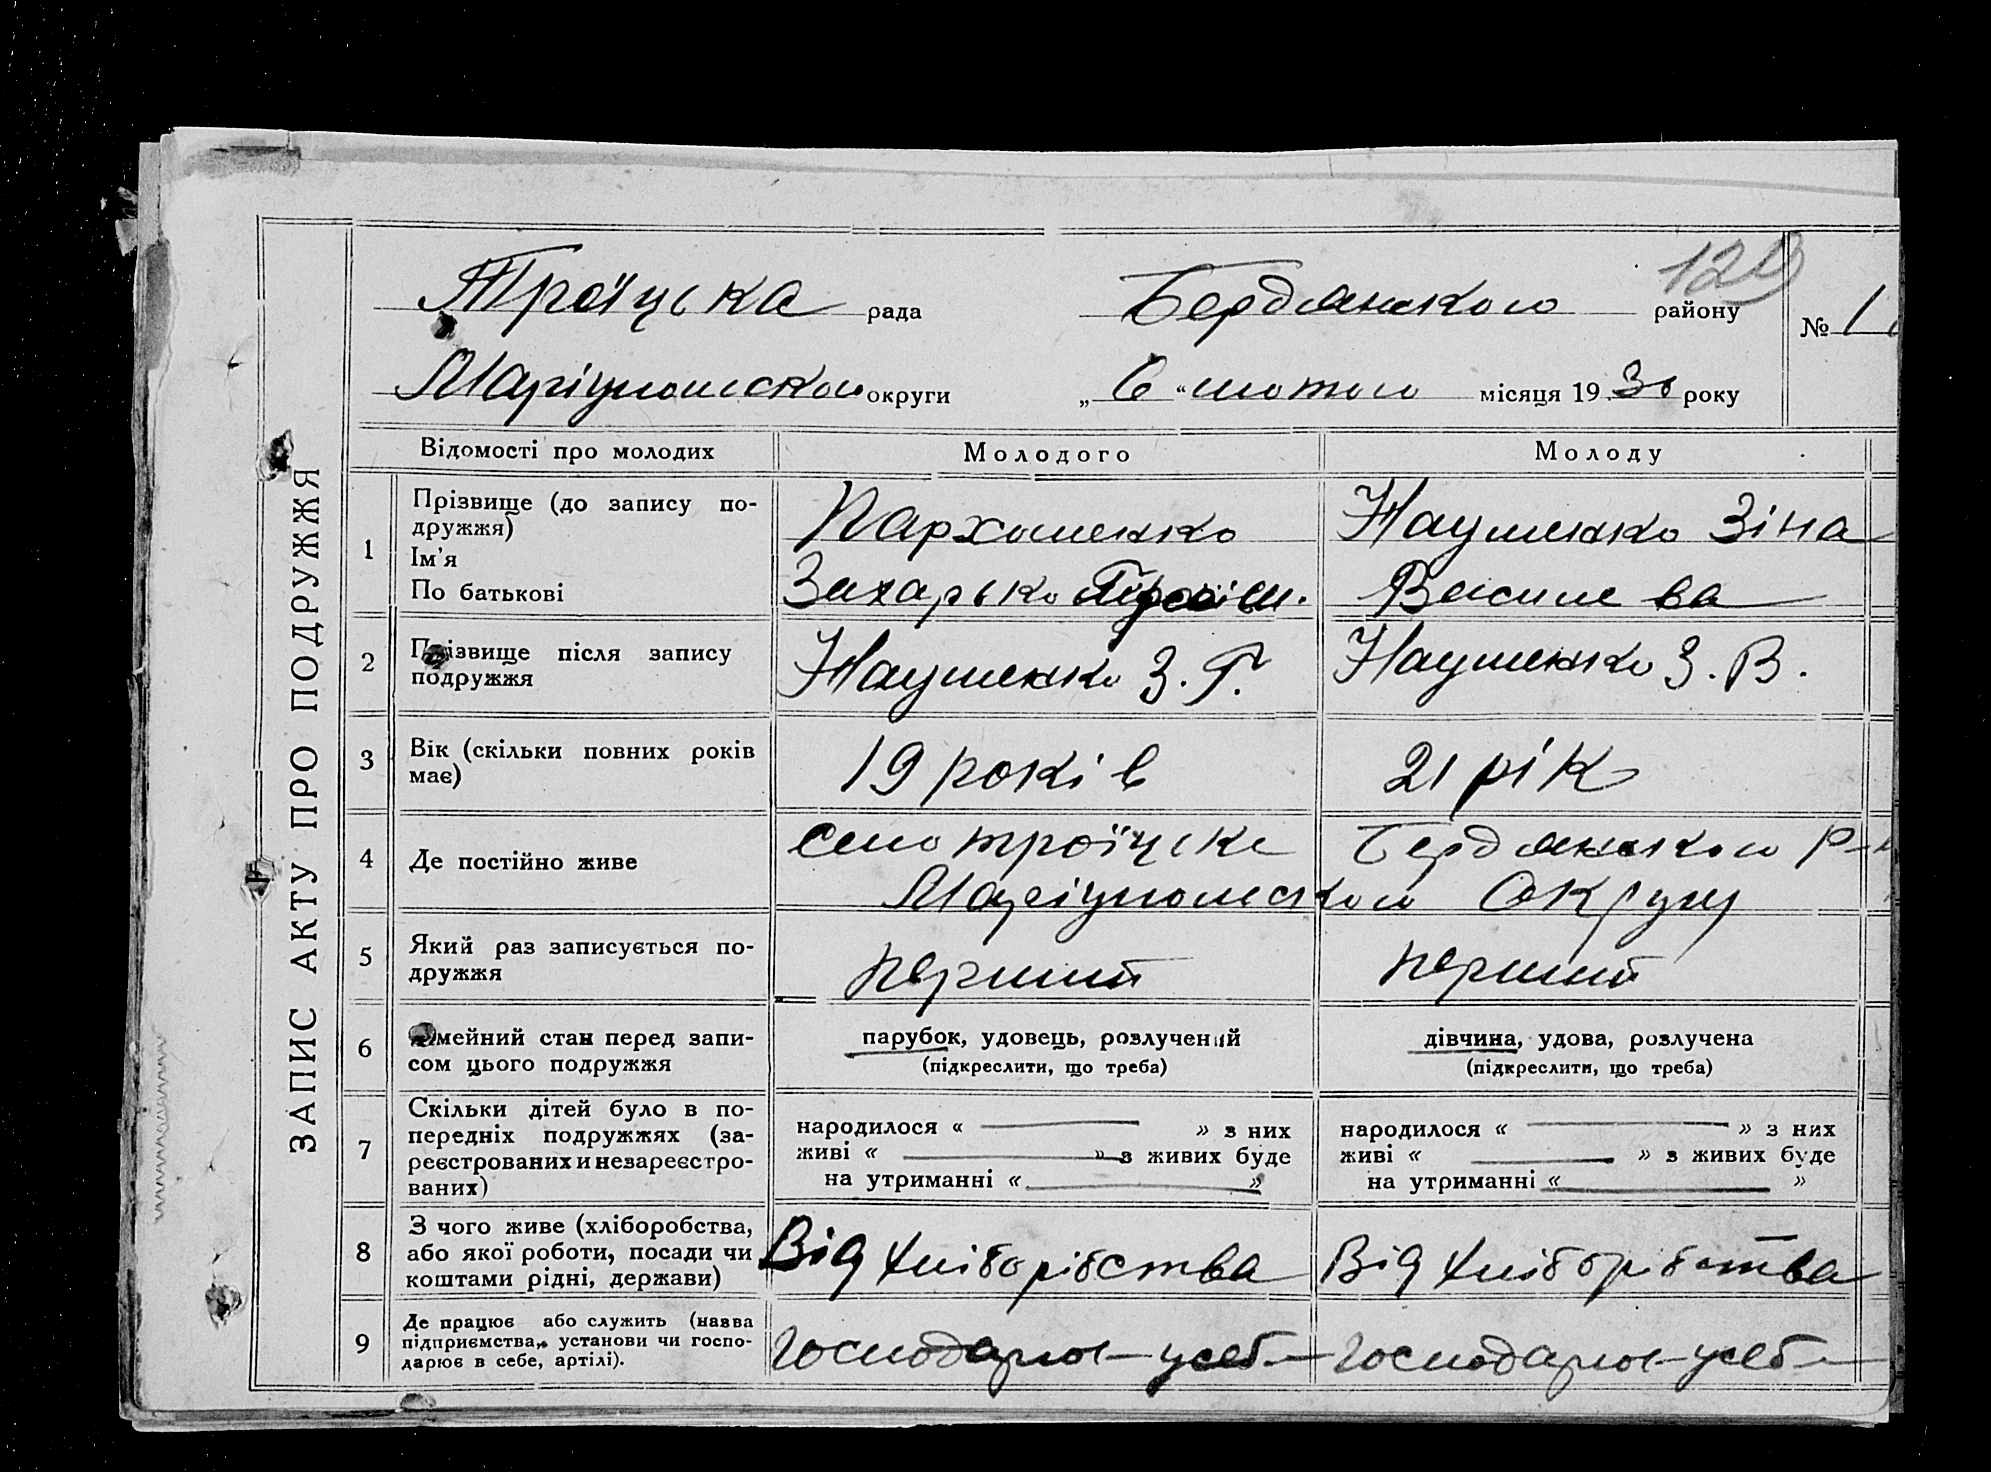 129
Троїцька рада Бердянського району
№ 1
Маріупольської округи „ 6 “ лютого місяця 1930 року
ЗАПИС АКТУ ПРО ПОДРУЖЖЯ
Відомості про молодих Молодого Молоду
1 Прізвище (до запису по-
дружжя)
Ім'я
По батькові
Пархоменко
Захарько
Науменко Зіна
Васильева
2 Прізвище після запису
подружжя
Науменко З. Г.
Науменко З. В.
3 Вік (скільки повних років
має)
19 років
21 рік
4 Де постійно живе
село троїцьке Бердянського Р-н
Маріупольского Округу
5 Який раз записується по-
дружжя
перший
перший
6 Сімейний стан перед запи-
сом цього подружжя
парубок, удовець, розлучений
(підкреслити, що треба)
дівчина, удова, розлучена
(підкреслити, що треба)
7 Скільки дітей було в по-
передніх подружжях (за-
реєстрованих и незареєстро-
ваних)
народилося « » з них
живі « » з живих буде
на утриманні « »
народилося « » з них
живі « » з живих буде
на утриманні « »
8 З чого живе (хліборобства,
або якої роботи, посади чи
коштами рідні, держави)
Від хліборібства
Від хліборібства
9 Де працює або служить (назва
підприємства, установи чи госпо-
дарює в себе, артілі).
господарює усебе
господарює усебе